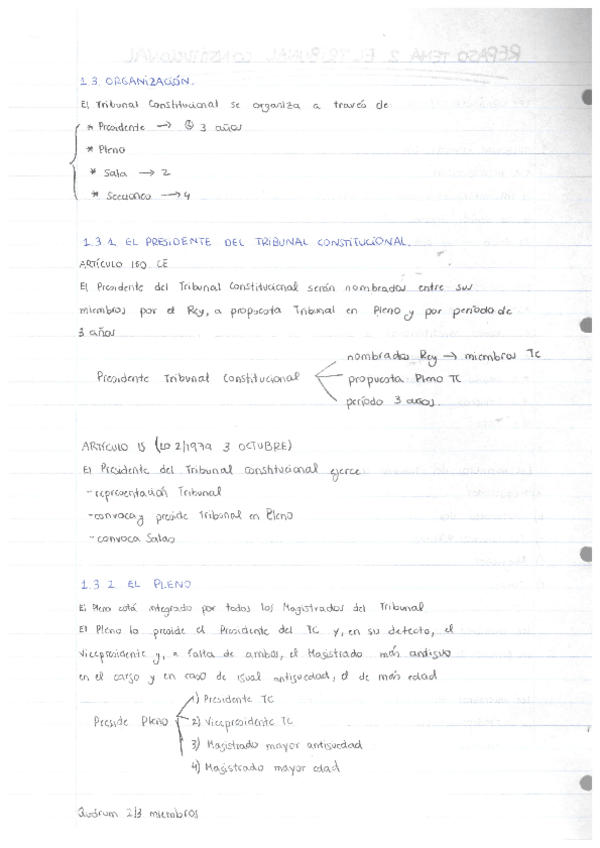 1.3. ORGANIZACIÓN.
El Tribunal Constitucional se organiza a través de
* Presidente → 3 años
* Pleno
* Sala → 2
* Secciones → 4
1.3.1. EL PRESIDENTE DEL TRIBUNAL CONSTITUCIONAL.
ARTÍCULO 160 CE
El Presidente del Tribunal Constitucional serán nombrados entre sus
miembros por el Rey, a propuesta Tribunal en Pleno y por período de
3 años
nombrados Rey → miembros TC
Presidente Tribunal Constitucional
propuesta Pleno TC
período 3 años.
ARTÍCULO 15 (LO 2/1979 3 OCTUBRE)
El Presidente del Tribunal constitucional ejerce
-representación Tribunal
-convoca y preside Tribunal en Pleno
-convoca Salas
1.3.2. EL PLENO
El Pleno está integrado por todos los Magistrados del Tribunal
El Pleno lo preside el Presidente del TC y, en su defecto, el
Vicepresidente y, a falta de ambos, el Magistrado más antiguo
en el cargo y en caso de igual antiguedad, el de más edad
1) Presidente TC
Preside Pleno
2) Vicepresidente TC
3) Magistrado mayor antiguedad
4) Magistrado mayor edad
Quórum 2/3 miembros